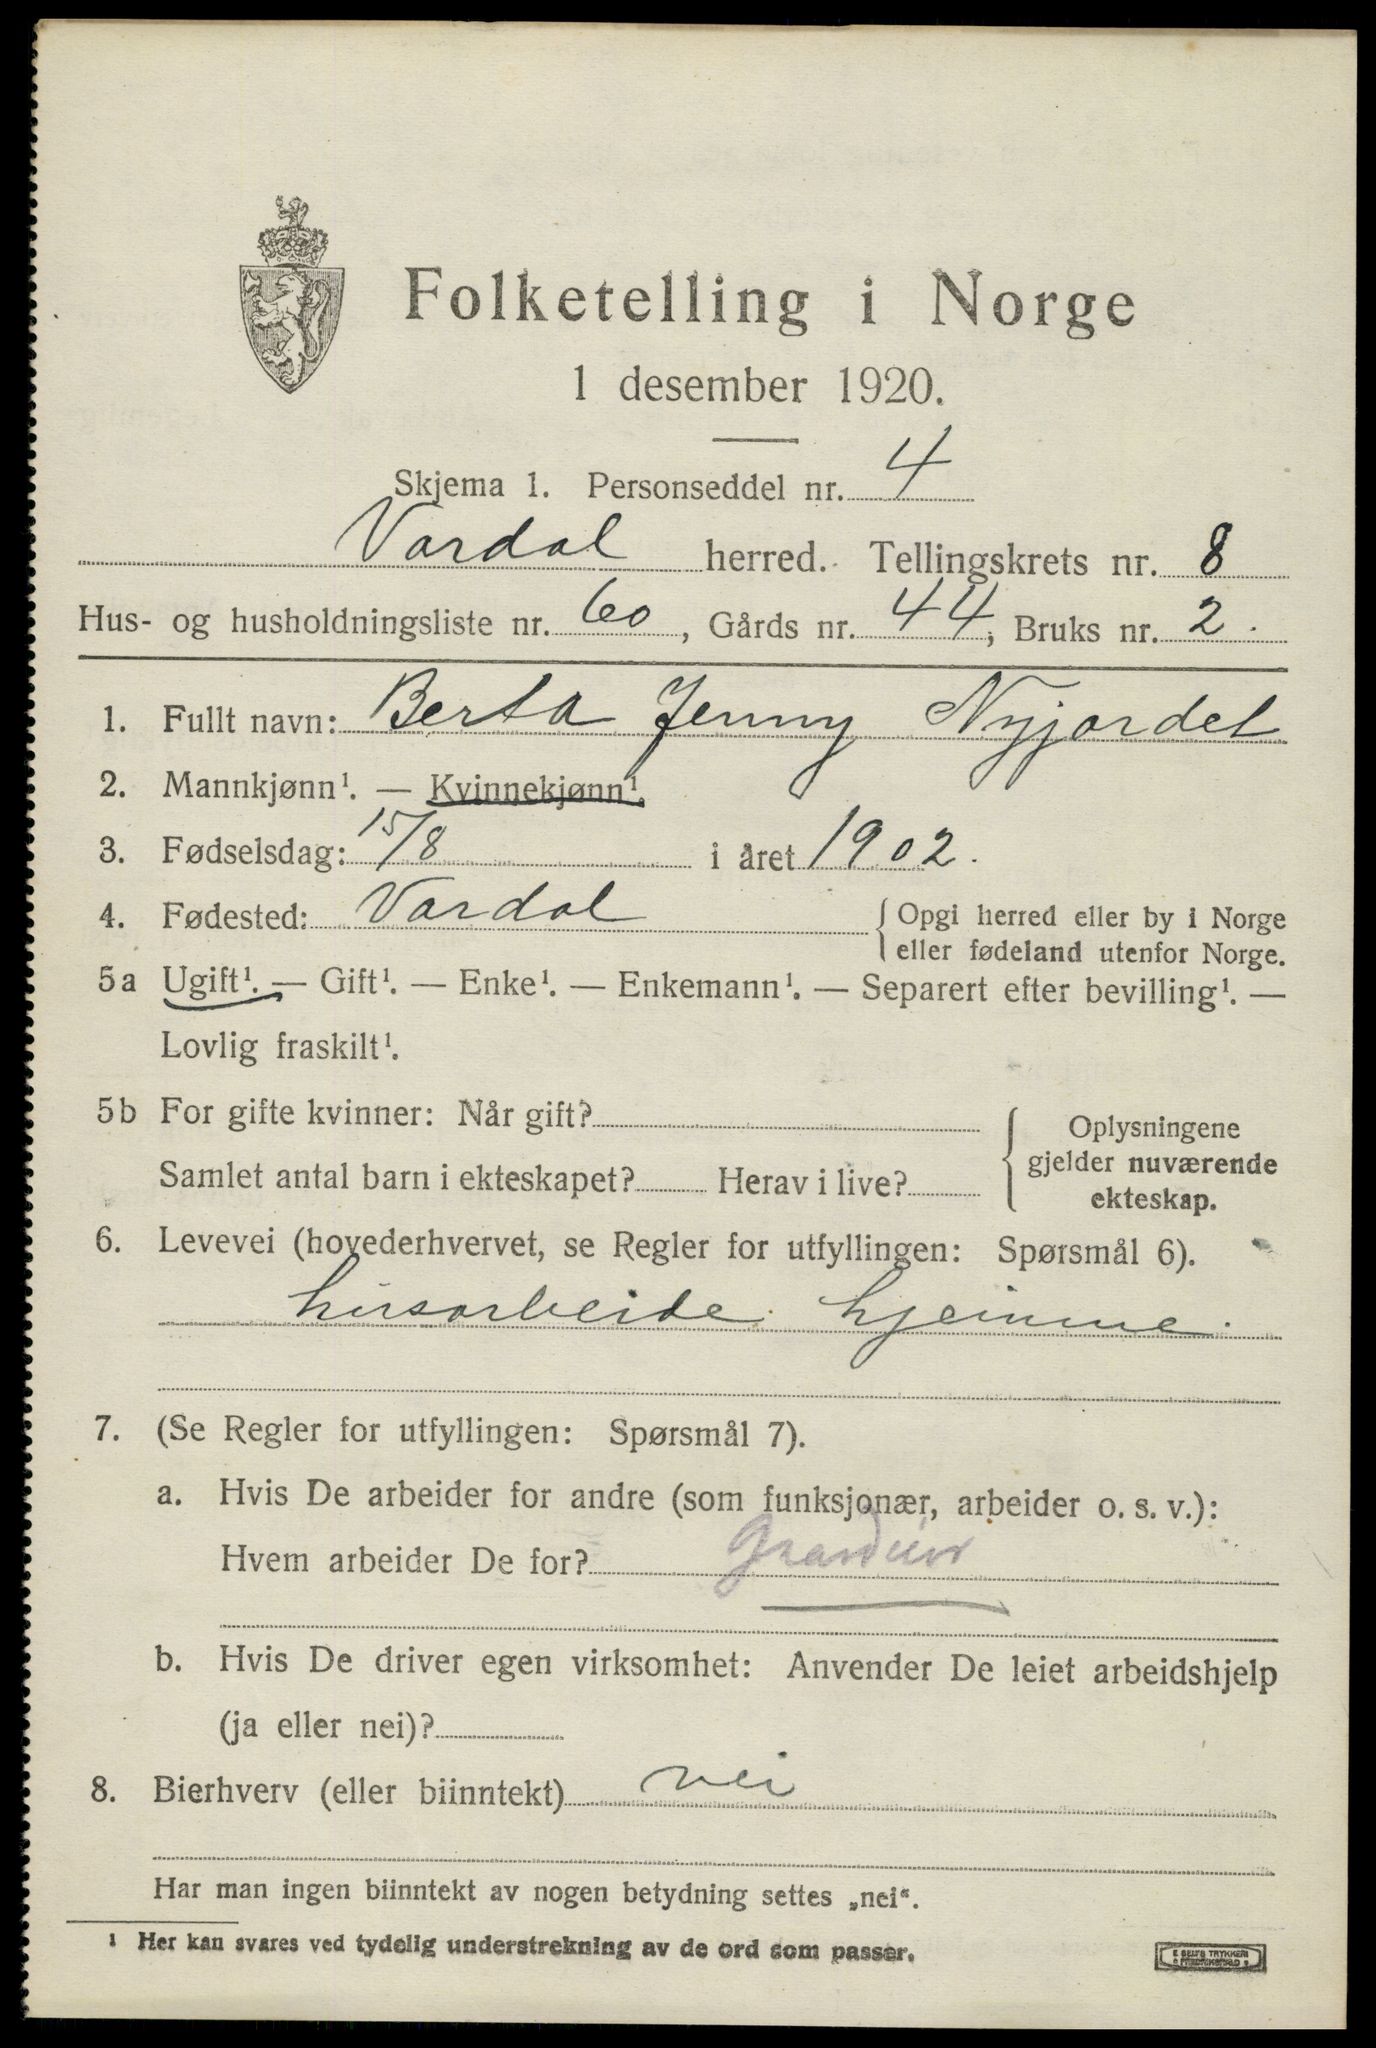 Folketelling i Norge
1 desember 1920.
Skjema 1. Personseddel nr. 4
Vardal herred. Tellingskrets nr. 8
Hus- og husholdningsliste nr. 60, Gårds nr. 44, Bruks nr. 2.
1. Fullt navn: Berta Jenny Nyjordet
2. Mannkjønn¹. — Kvinnekjønn¹.
3. Fødselsdag: 15/8 i året 1902.
4. Fødested: Vardal { Opgi herred eller by i Norge
eller fødeland utenfor Norge.
5a Ugift¹. — Gift¹. — Enke¹. — Enkemann¹. — Separert efter bevilling¹. —
Lovlig fraskilt¹.
5b For gifte kvinner: Når gift?
Samlet antal barn i ekteskapet? Herav i live?
Oplysningene
gjelder nuværende
ekteskap.
6. Levevei (hovederhvervet, se Regler for utfyllingen: Spørsmål 6).
husarbeide hjemme.
7. (Se Regler for utfyllingen: Spørsmål 7).
a. Hvis De arbeider for andre (som funksjonær, arbeider o. s. v.):
Hvem arbeider De for?
b. Hvis De driver egen virksomhet: Anvender De leiet arbeidshjelp
(ja eller nei)?
8. Bierhverv (eller biinntekt) nei
Har man ingen biinntekt av nogen betydning settes „nei“.
¹ Her kan svares ved tydelig understrekning av de ord som passer.
E SELTS TRYKKERI
FREDRIKSHALD